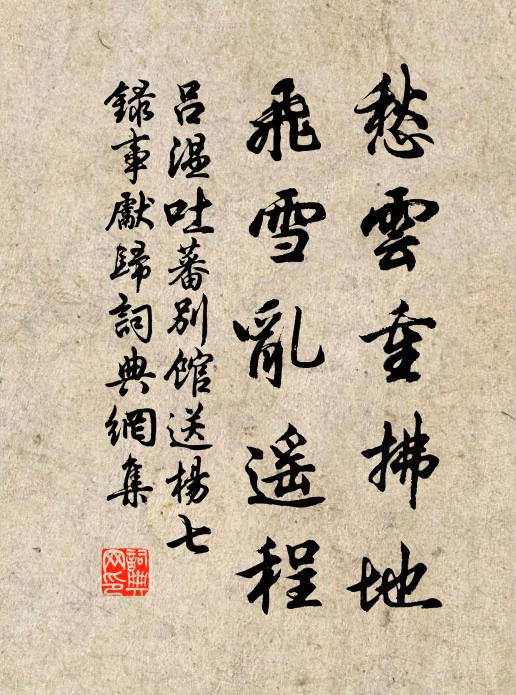 愁雲重拂地
飛雪亂遥程
呂温吐蕃別館送楊七
錄事先歸詞典網集
詞典网印